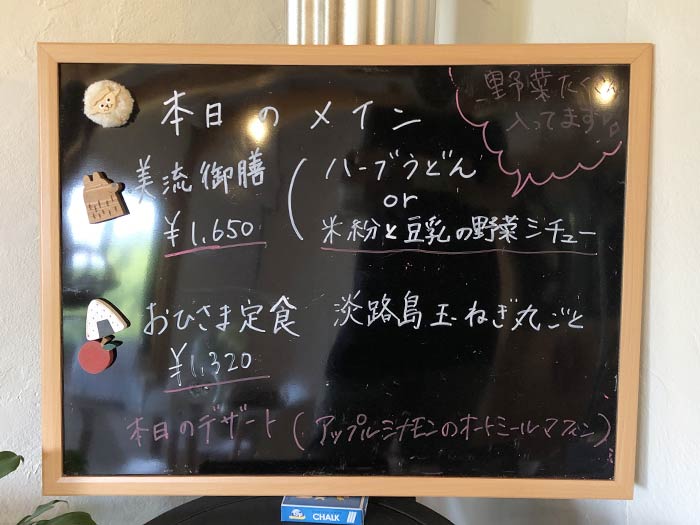 本日のメイン
野菜たくさん
入ってます
美流御膳
¥1,650
ハーブうどん
or
米粉と豆乳の野菜シチュー
おひさま定食 淡路島玉ねぎ丸ごと
¥1,320
本日のデザート(アップルシナモンのオートミールマフィン)
CHALK